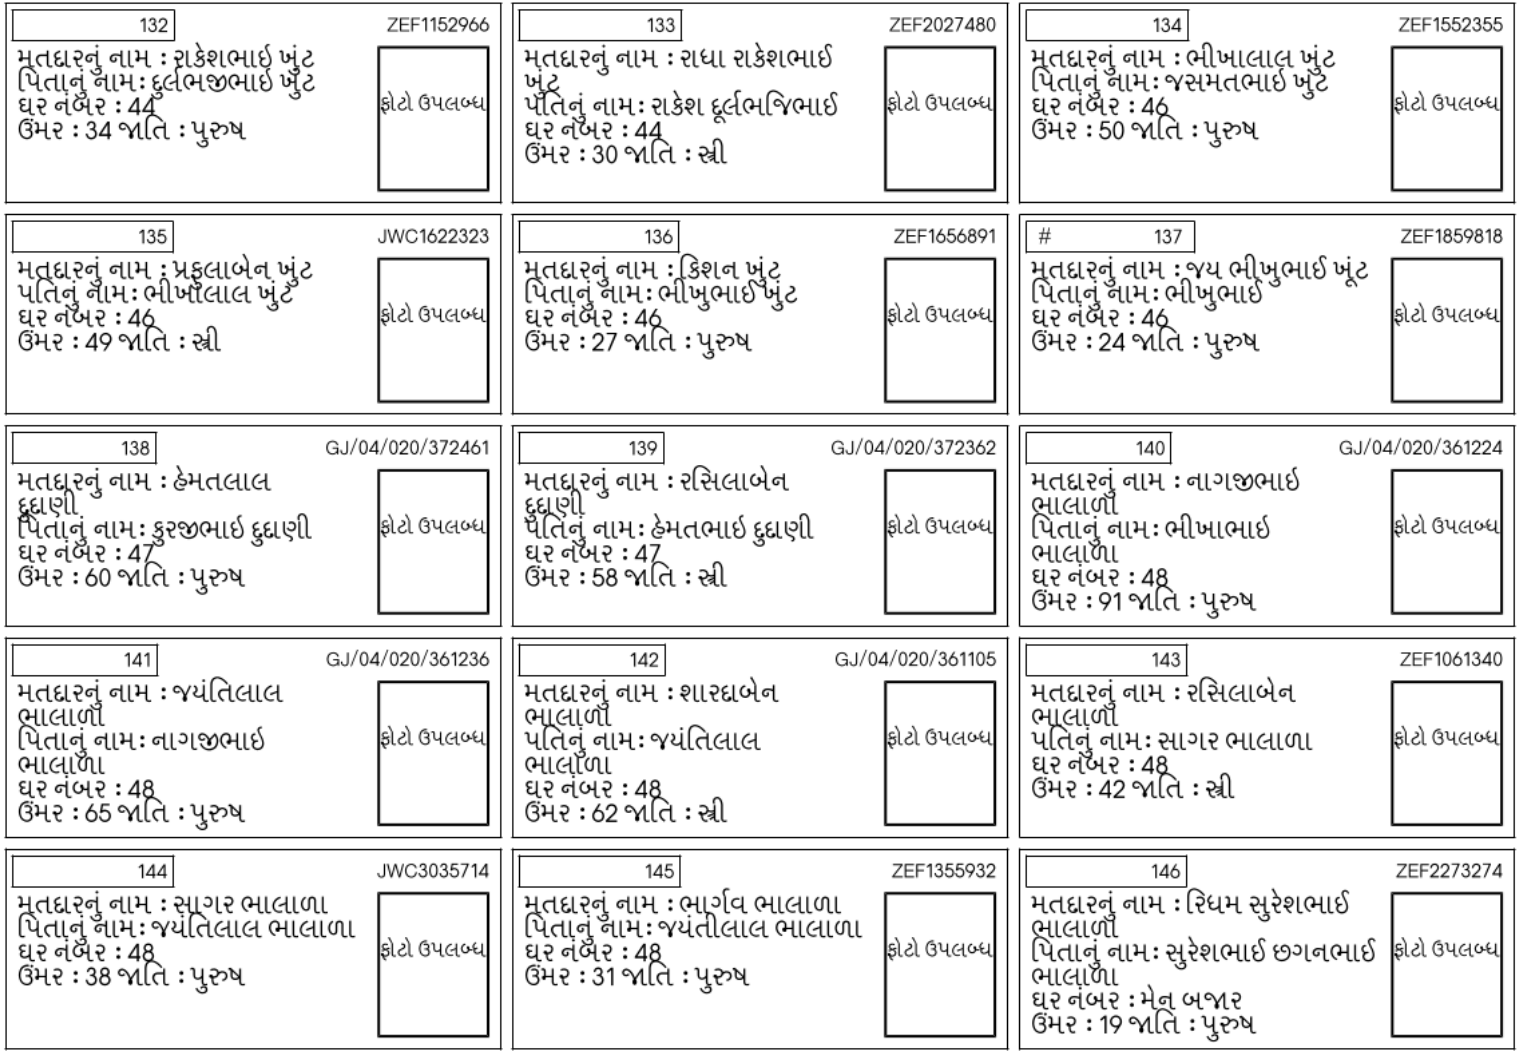 132 ZEF1152966
મતદારનું નામ : રાકેશભાઇ ખુંટ
પિતાનું નામ: દુર્લભજીભાઇ ખુંટ
ઘર નંબર : 44
ઉંમર : 34 જાતિ : પુરુષ
ફોટો ઉપલબ્ધ
133 ZEF2027480
મતદારનું નામ : રાધા રાકેશભાઈ
ખુંટ
પતિનું નામ: રાકેશ દૂર્લભજિભાઈ
ઘર નંબર : 44
ઉંમર : 30 જાતિ : સ્ત્રી
ફોટો ઉપલબ્ધ
134 ZEF1552355
મતદારનું નામ : ભીખાલાલ ખુંટ
પિતાનું નામ: જસમતભાઇ ખુંટ
ઘર નંબર : 46
ઉંમર : 50 જાતિ : પુરુષ
ફોટો ઉપલબ્ધ
135 JWC1622323
મતદારનું નામ : પ્રફુલાબેન ખુંટ
પતિનું નામ: ભીખાલાલ ખુંટ
ઘર નંબર : 46
ઉંમર : 49 જાતિ : સ્ત્રી
ફોટો ઉપલબ્ધ
136 ZEF1656891
મતદારનું નામ : કિશન ખુંટ
પિતાનું નામ: ભીખુભાઈ ખુંટ
ઘર નંબર : 46
ઉંમર : 27 જાતિ : પુરુષ
ફોટો ઉપલબ્ધ
# 137 ZEF1859818
મતદારનું નામ : જય ભીખુભાઈ ખૂંટ
પિતાનું નામ: ભીખુભાઈ
ઘર નંબર : 46
ઉંમર : 24 જાતિ : પુરુષ
ફોટો ઉપલબ્ધ
138 GJ/04/020/372461
મતદારનું નામ : હેમતલાલ
દુદાણી
પિતાનું નામ: કુરજીભાઇ દુદાણી
ઘર નંબર : 47
ઉંમર : 60 જાતિ : પુરુષ
ફોટો ઉપલબ્ધ
139 GJ/04/020/372362
મતદારનું નામ : રસિલાબેન
દુદાણી
પતિનું નામ: હેમતભાઇ દુદાણી
ઘર નંબર : 47
ઉંમર : 58 જાતિ : સ્ત્રી
ફોટો ઉપલબ્ધ
140 GJ/04/020/361224
મતદારનું નામ : નાગજીભાઇ
ભાલાળા
પિતાનું નામ: ભીખાભાઇ
ભાલાળા
ઘર નંબર : 48
ઉંમર : 91 જાતિ : પુરુષ
ફોટો ઉપલબ્ધ
141 GJ/04/020/361236
મતદારનું નામ : જયંતિલાલ
ભાલાળા
પિતાનું નામ: નાગજીભાઇ
ભાલાળા
ઘર નંબર : 48
ઉંમર : 65 જાતિ : પુરુષ
ફોટો ઉપલબ્ધ
142 GJ/04/020/361105
મતદારનું નામ : શારદાબેન
ભાલાળા
પતિનું નામ: જયંતિલાલ
ભાલાળા
ઘર નંબર : 48
ઉંમર : 62 જાતિ : સ્ત્રી
ફોટો ઉપલબ્ધ
143 ZEF1061340
મતદારનું નામ : રસિલાબેન
ભાલાળા
પતિનું નામ: સાગર ભાલાળા
ઘર નંબર : 48
ઉંમર : 42 જાતિ : સ્ત્રી
ફોટો ઉપલબ્ધ
144 JWC3035714
મતદારનું નામ : સાગર ભાલાળા
પિતાનું નામ: જયંતિલાલ ભાલાળા
ઘર નંબર : 48
ઉંમર : 38 જાતિ : પુરુષ
ફોટો ઉપલબ્ધ
145 ZEF1355932
મતદારનું નામ : ભાર્ગવ ભાલાળા
પિતાનું નામ: જયંતીલાલ ભાલાળા
ઘર નંબર : 48
ઉંમર : 31 જાતિ : પુરુષ
ફોટો ઉપલબ્ધ
146 ZEF2273274
મતદારનું નામ : રિધમ સુરેશભાઈ
ભાલાળા
પિતાનું નામ: સુરેશભાઈ છગનભાઈ
ભાલાળા
ઘર નંબર : મેન બજાર
ઉંમર : 19 જાતિ : પુરુષ
ફોટો ઉપલબ્ધ